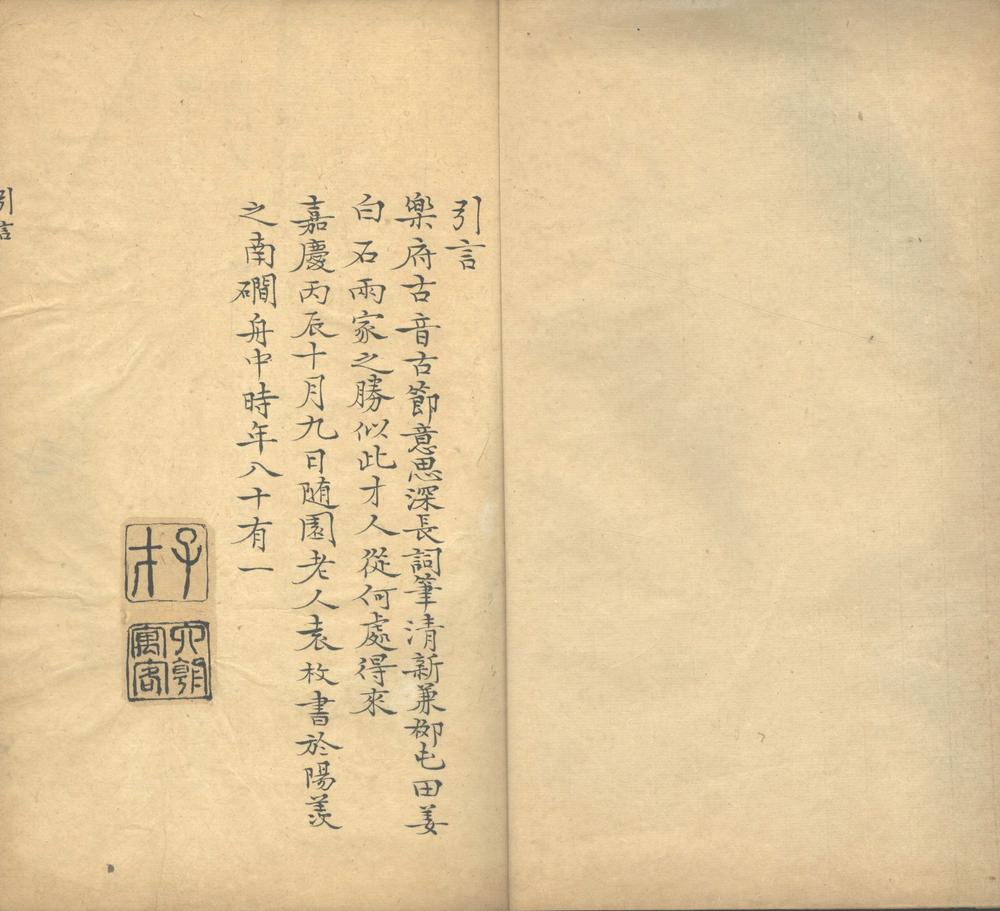 引言
樂府古音古節意思深長詞筆清新兼柳屯田姜
白石兩家之勝似此才人從何處得來
嘉慶丙辰十月九日随園老人袁枚書於陽羨
之南磵舟中時年八十有一
子才
引言